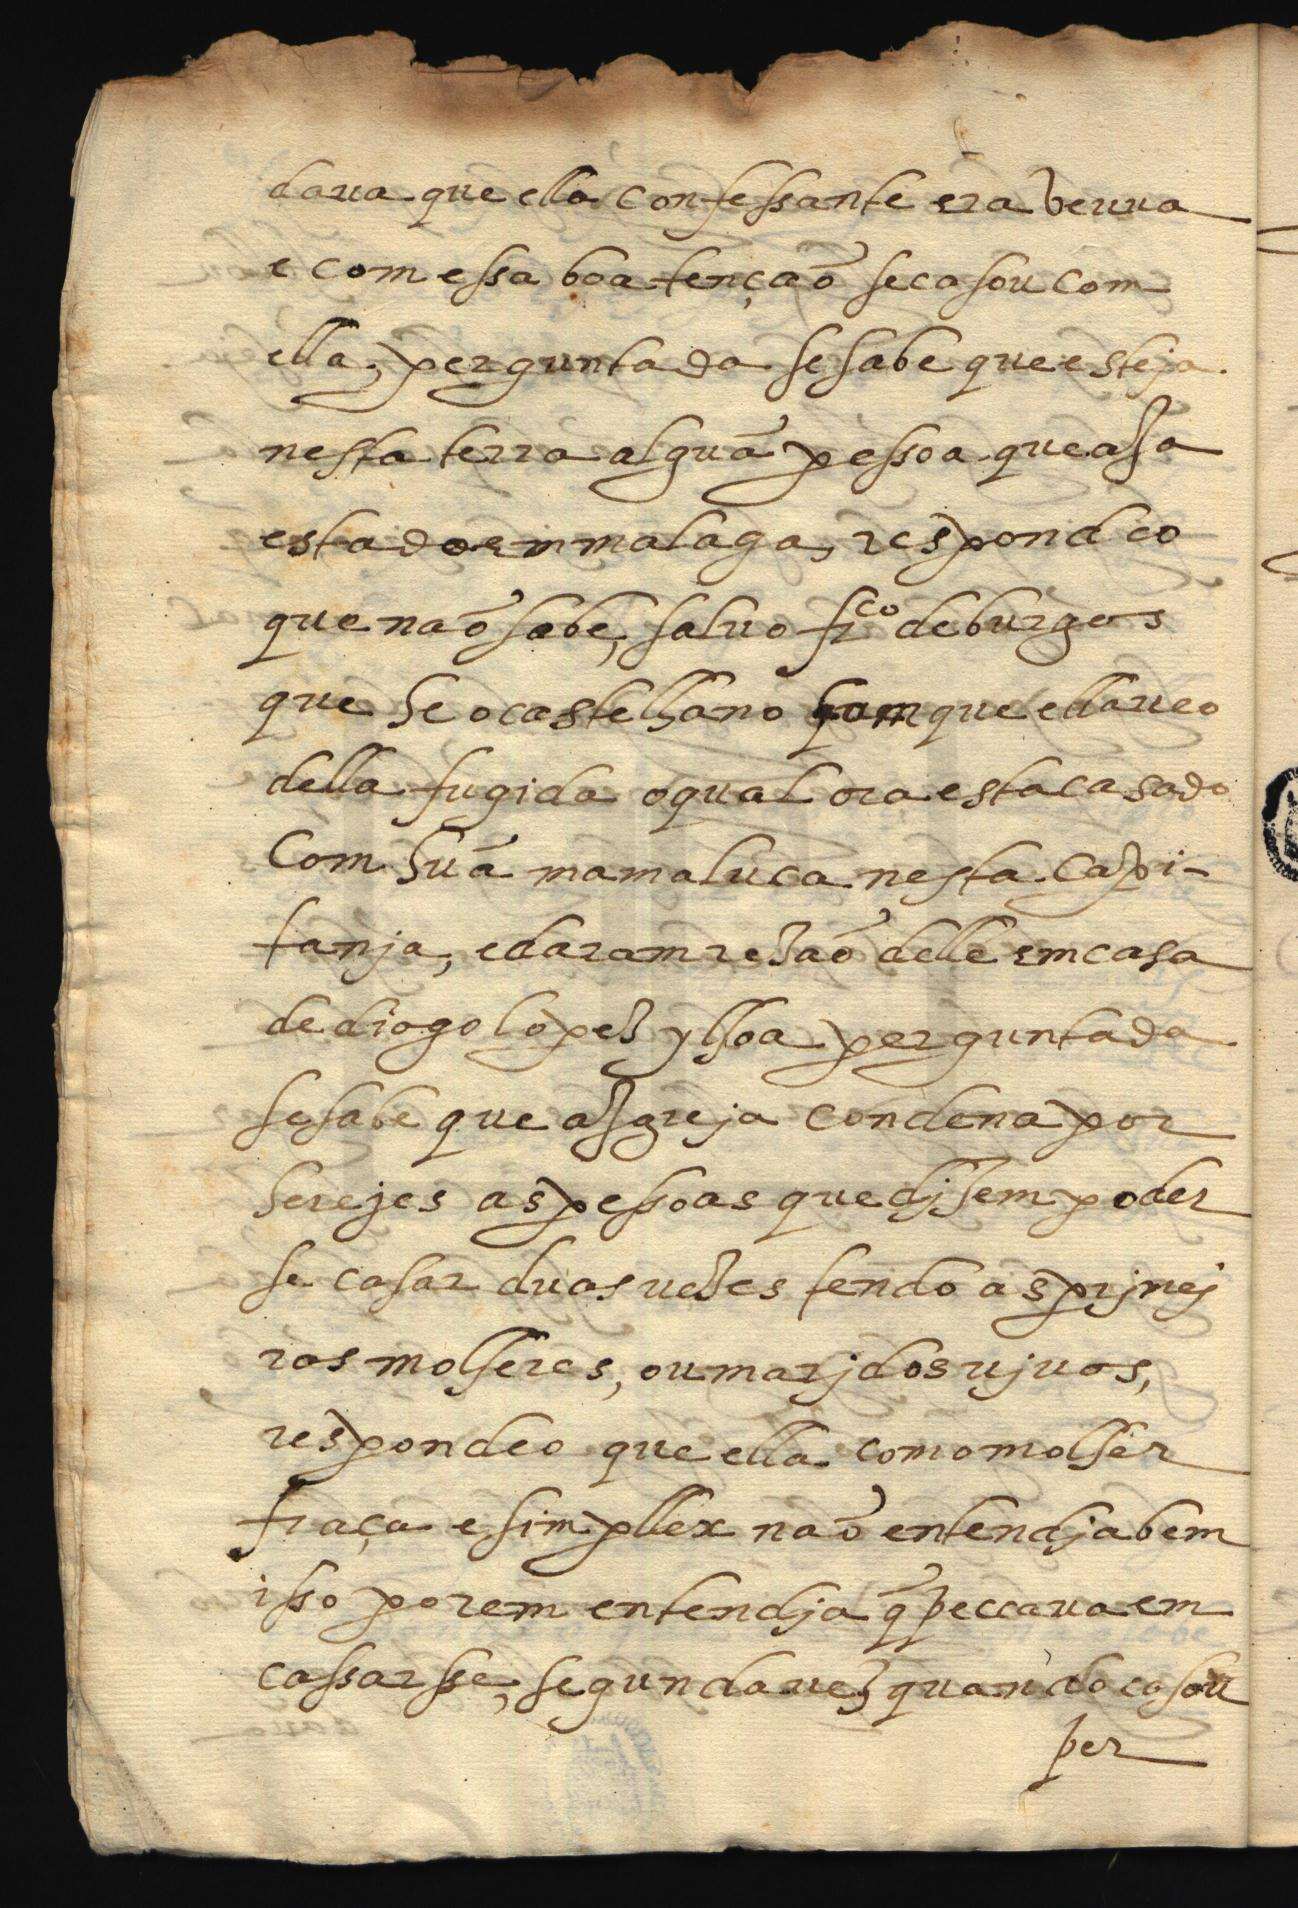 daua que ella confessante era veuua
e com essa boa tençaõ se casou com
ella, perguntada se sabe que esteja
nesta terra alguã pessoa que aja
estado em malaga, respondeo
que naõ sabe, saluo frco de burgos
que he o castelhano com que ella ueo
della fugida o qual ora esta casado
Com huã mamaluca nesta Capi-
tanja, e daram rezaõ delle em casa
de diogo lopez ylhoa perguntada
se sabe que a Igreja condena por
herejes as pessoas que dizem poder
se casar duas uezes tendo as prjmej
ras molheres, ou marjdos ujuos,
respondeo que ella como molher
fraca e simplex naõ entendja bem
isso porem entendja q̃ peccaua em
cassarsse, segunda uez quando casou
per